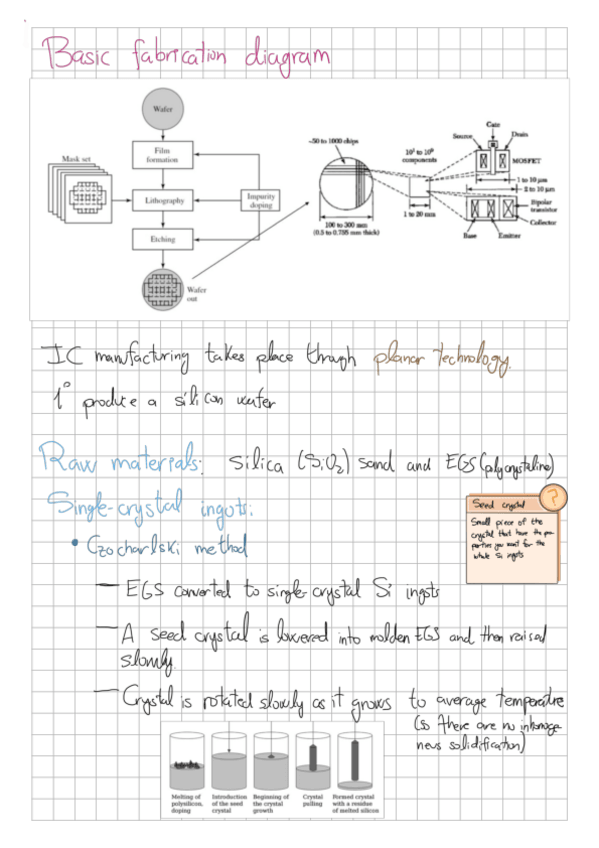 Basic fabrication diagram
Wafer
Film
formation
Mask set
Lithography
Impurity
doping
Etching
Wafer
out
~50 to 1000 chips
100 to 300 mm
(0.5 to 0.755 mm thick)
components
1 to 20 mm
Gate
Source
Drain
MOSFET
1 to 10 μm
2 to 10 μm
Bipolar
transistor
Collector
Base
Emitter
IC manufacturing takes place through planar technology.
1° produce a silicon wafer
Raw materials: silica (SiO2) sand and EGS (polycrystaline)
Single-crystal ingots:
• Czocharlski method
Seed crystal
?
Small piece of the
crystal that have the pro
perties you want for the
whole Si ingots
— EGS converted to single-crystal Si ingots
— A seed crystal is lowered into molden EGS and then raised
slowly.
— Crystal is rotated slowly as it grows to average temperature
(so there are no inhomoge
neus solidification)
Melting of
polysilicon,
doping
Introduction
of the seed
crystal
Beginning of
the crystal
growth
Crystal
pulling
Formed crystal
with a residue
of melted silicon